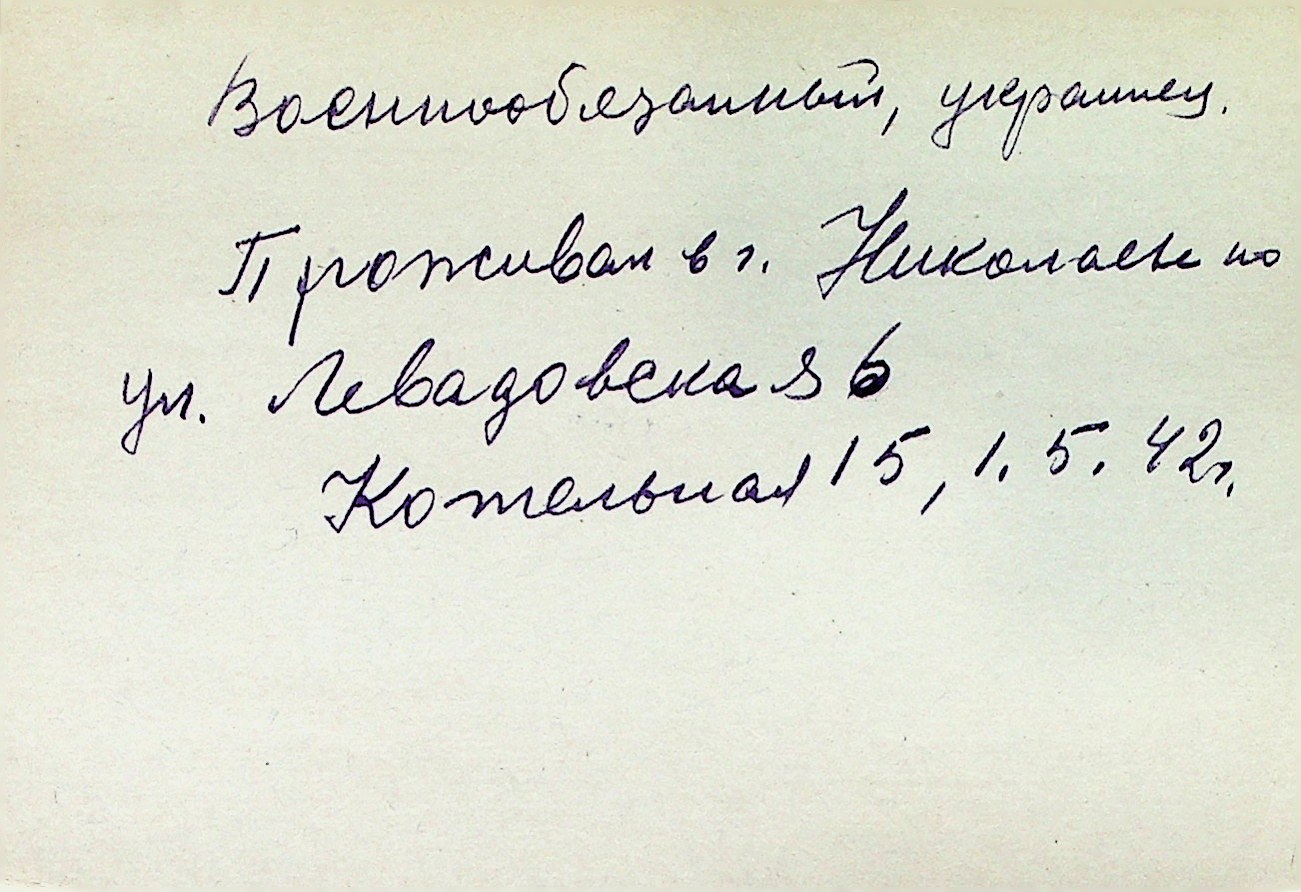 Военнообязанный, украинец.
Проживал в г. Николаеве по
ул. Левадовская 6
Котельная 15, 1.5.42г.